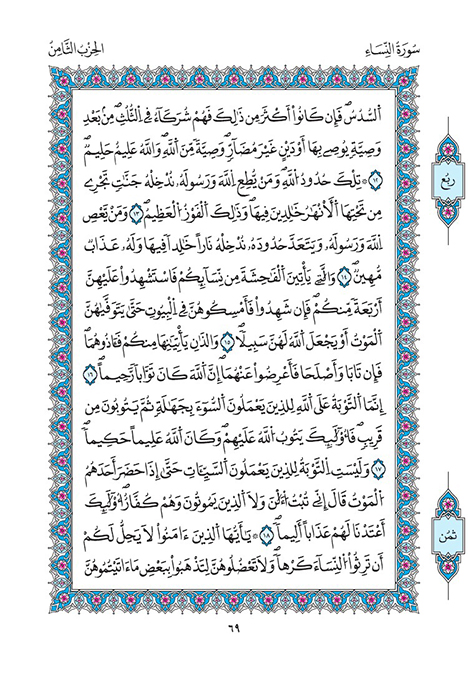 سُورَةُ النِّسَاءِ
الحِزْبُ الثَّامِنُ
اَ۬لسُّدُسُۖ فَإِن كَانُوٓاْ أَكْثَرَ مِن ذَٰلِكَ فَهُمْ شُرَكَآءُ فِے اِ۬لثُّلُثِۖ مِنۢ بَعْدِ
وَصِيَّةٖ يُوصِے بِهَآ أَوْ دَيْنٍ غَيْرَ مُضَآرّٖۖ وَصِيَّةٗ مِّنَ اَ۬للَّهِۖ وَاللَّهُ عَلِيمٌ حَلِيمٞۖ
١٢ ۞ تِلْكَ حُدُودُ اُ۬للَّهِۖ وَمَنْ يُّطِعِ اِ۬للَّهَ وَرَسُولَهُۥ نُدْخِلْهُ جَنَّٰتٖ تَجْرِے
مِن تَحْتِهَا اَ۬لْأَنْهَٰرُ خَٰلِدِينَ فِيهَاۖ وَذَٰلِكَ اَ۬لْفَوْزُ اُ۬لْعَظِيمُۖ ١٣ وَمَنْ يَّعْصِ
اِ۬للَّهَ وَرَسُولَهُۥ وَيَتَعَدَّ حُدُودَهُۥ نُدْخِلْهُ نَاراً خَٰلِداٗ فِيهَا وَلَهُۥ عَذَابٞ
مُّهِينٞۖ ١٤ وَالَّٰتِے يَأْتِينَ اَ۬لْفَٰحِشَةَ مِن نِّسَآئِكُمْ فَاسْتَشْهِدُواْ عَلَيْهِنَّ
أَرْبَعَةٗ مِّنكُمْۖ فَإِن شَهِدُواْ فَأَمْسِكُوهُنَّ فِے اِ۬لْبُيُوتِ حَتَّىٰ يَتَوَفَّيٰهُنَّ
اَ۬لْمَوْتُ أَوْ يَجْعَلَ اَ۬للَّهُ لَهُنَّ سَبِيلاٗۖ ١٥ وَالذَٰنِ يَأْتِيَٰنِهَا مِنكُمْ فَـَٔاذُوهُمَاۖ
فَإِن تَابَا وَأَصْلَحَا فَأَعْرِضُواْ عَنْهُمَآۖ إِنَّ اَ۬للَّهَ كَانَ تَوَّاباٗ رَّحِيماًۖ ١٦
إِنَّمَا اَ۬لتَّوْبَةُ عَلَى اَ۬للَّهِ لِلذِينَ يَعْمَلُونَ اَ۬لسُّوٓءَ بِجَهَٰلَةٖ ثُمَّ يَتُوبُونَ مِن
قَرِيبٖۖ فَأُوْلَٰٓئِكَ يَتُوبُ اُ۬للَّهُ عَلَيْهِمْۖ وَكَانَ اَ۬للَّهُ عَلِيماً حَكِيماٗۖ
١٧ وَلَيْسَتِ اِ۬لتَّوْبَةُ لِلذِينَ يَعْمَلُونَ اَ۬لسَّيِّـَٔاتِ حَتَّىٰٓ إِذَا حَضَرَ أَحَدَهُمُ
اُ۬لْمَوْتُ قَالَ إِنِّے تُبْتُ اُ۬لَٰٔنَ وَلَا اَ۬لذِينَ يَمُوتُونَ وَهُمْ كُفَّارٌۖ أُوْلَٰٓئِكَ
أَعْتَدْنَا لَهُمْ عَذَاباً أَلِيماٗۖ ١٨ ۞ يَٰٓأَيُّهَا اَ۬لذِينَ ءَامَنُواْ لَا يَحِلُّ لَكُمُۥٓ
أَن تَرِثُواْ اُ۬لنِّسَآءَ كَرْهاٗۖ وَلَا تَعْضُلُوهُنَّ لِتَذْهَبُواْ بِبَعْضِ مَآ ءَاتَيْتُمُوهُنَّ
رُبُع
ثُمُن
٦٩